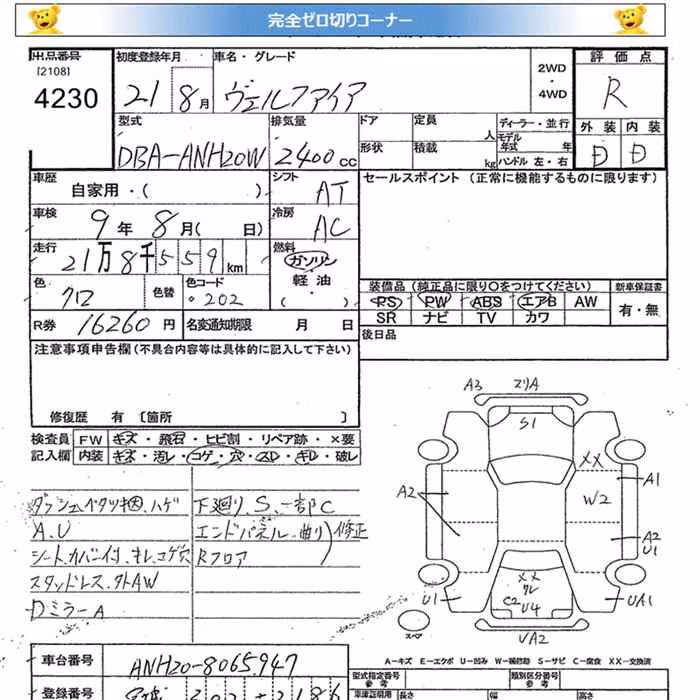 完全ゼロ切りコーナー
出品番号 初度登録年月 車名・グレード 2WD 評価点
[2108]
4230 21 8月 ヴェルファイア ・4WD R
型式 排気量 ドア 定員 人 ディーラー・並行 外装 内装
DBA-ANH20W 2400cc 形状 積載 kg モデル年式 年 ハンドル 左・右 D D
車歴 自家用・( ) シフト AT セールスポイント (正常に機能するものに限ります)
車検 9年 8月( 日) 冷房 AC
走行 21万8千559km 燃料 ガソリン
軽油
( )
色 クロ 色替 色コード 202
装備品 (純正品に限り○をつけてください) 新車保証書
PS PW ABS エアB AW 有・無
SR ナビ TV カワ
R券 16260円 名変通知期限 月 日 後日品
注意事項申告欄(不具合内容等は具体的に記入して下さい)
修復歴 有 〔箇所 〕
検査員 FW キズ・飛石・ヒビ割・リペア跡・×要
記入欄 内装 キズ・汚レ・コゲ・穴・スレ・キレ・破レ
ダッシュベタツキ・ハゲ
A.U
シート.カバー付.キレ.コゲ穴
スタッドレス.外AW
Dミラー A
下廻り.S.一部C
エンドパネル.曲り 修正
Rフロア
A3 マリA
S1
XX
A1
A2 W2
A2
U1
XX
クレ
C2 U4
U1 UA1
UA2
スペア
A-キズ E-エクボ U-凹み W-補修跡 S-サビ C-腐食 XX-交換済
車台番号 ANH20-8065947 型式指定番号 類別区分番号
参考 参考
登録番号 302 2186 車庫証明用 長さ 幅 高さ